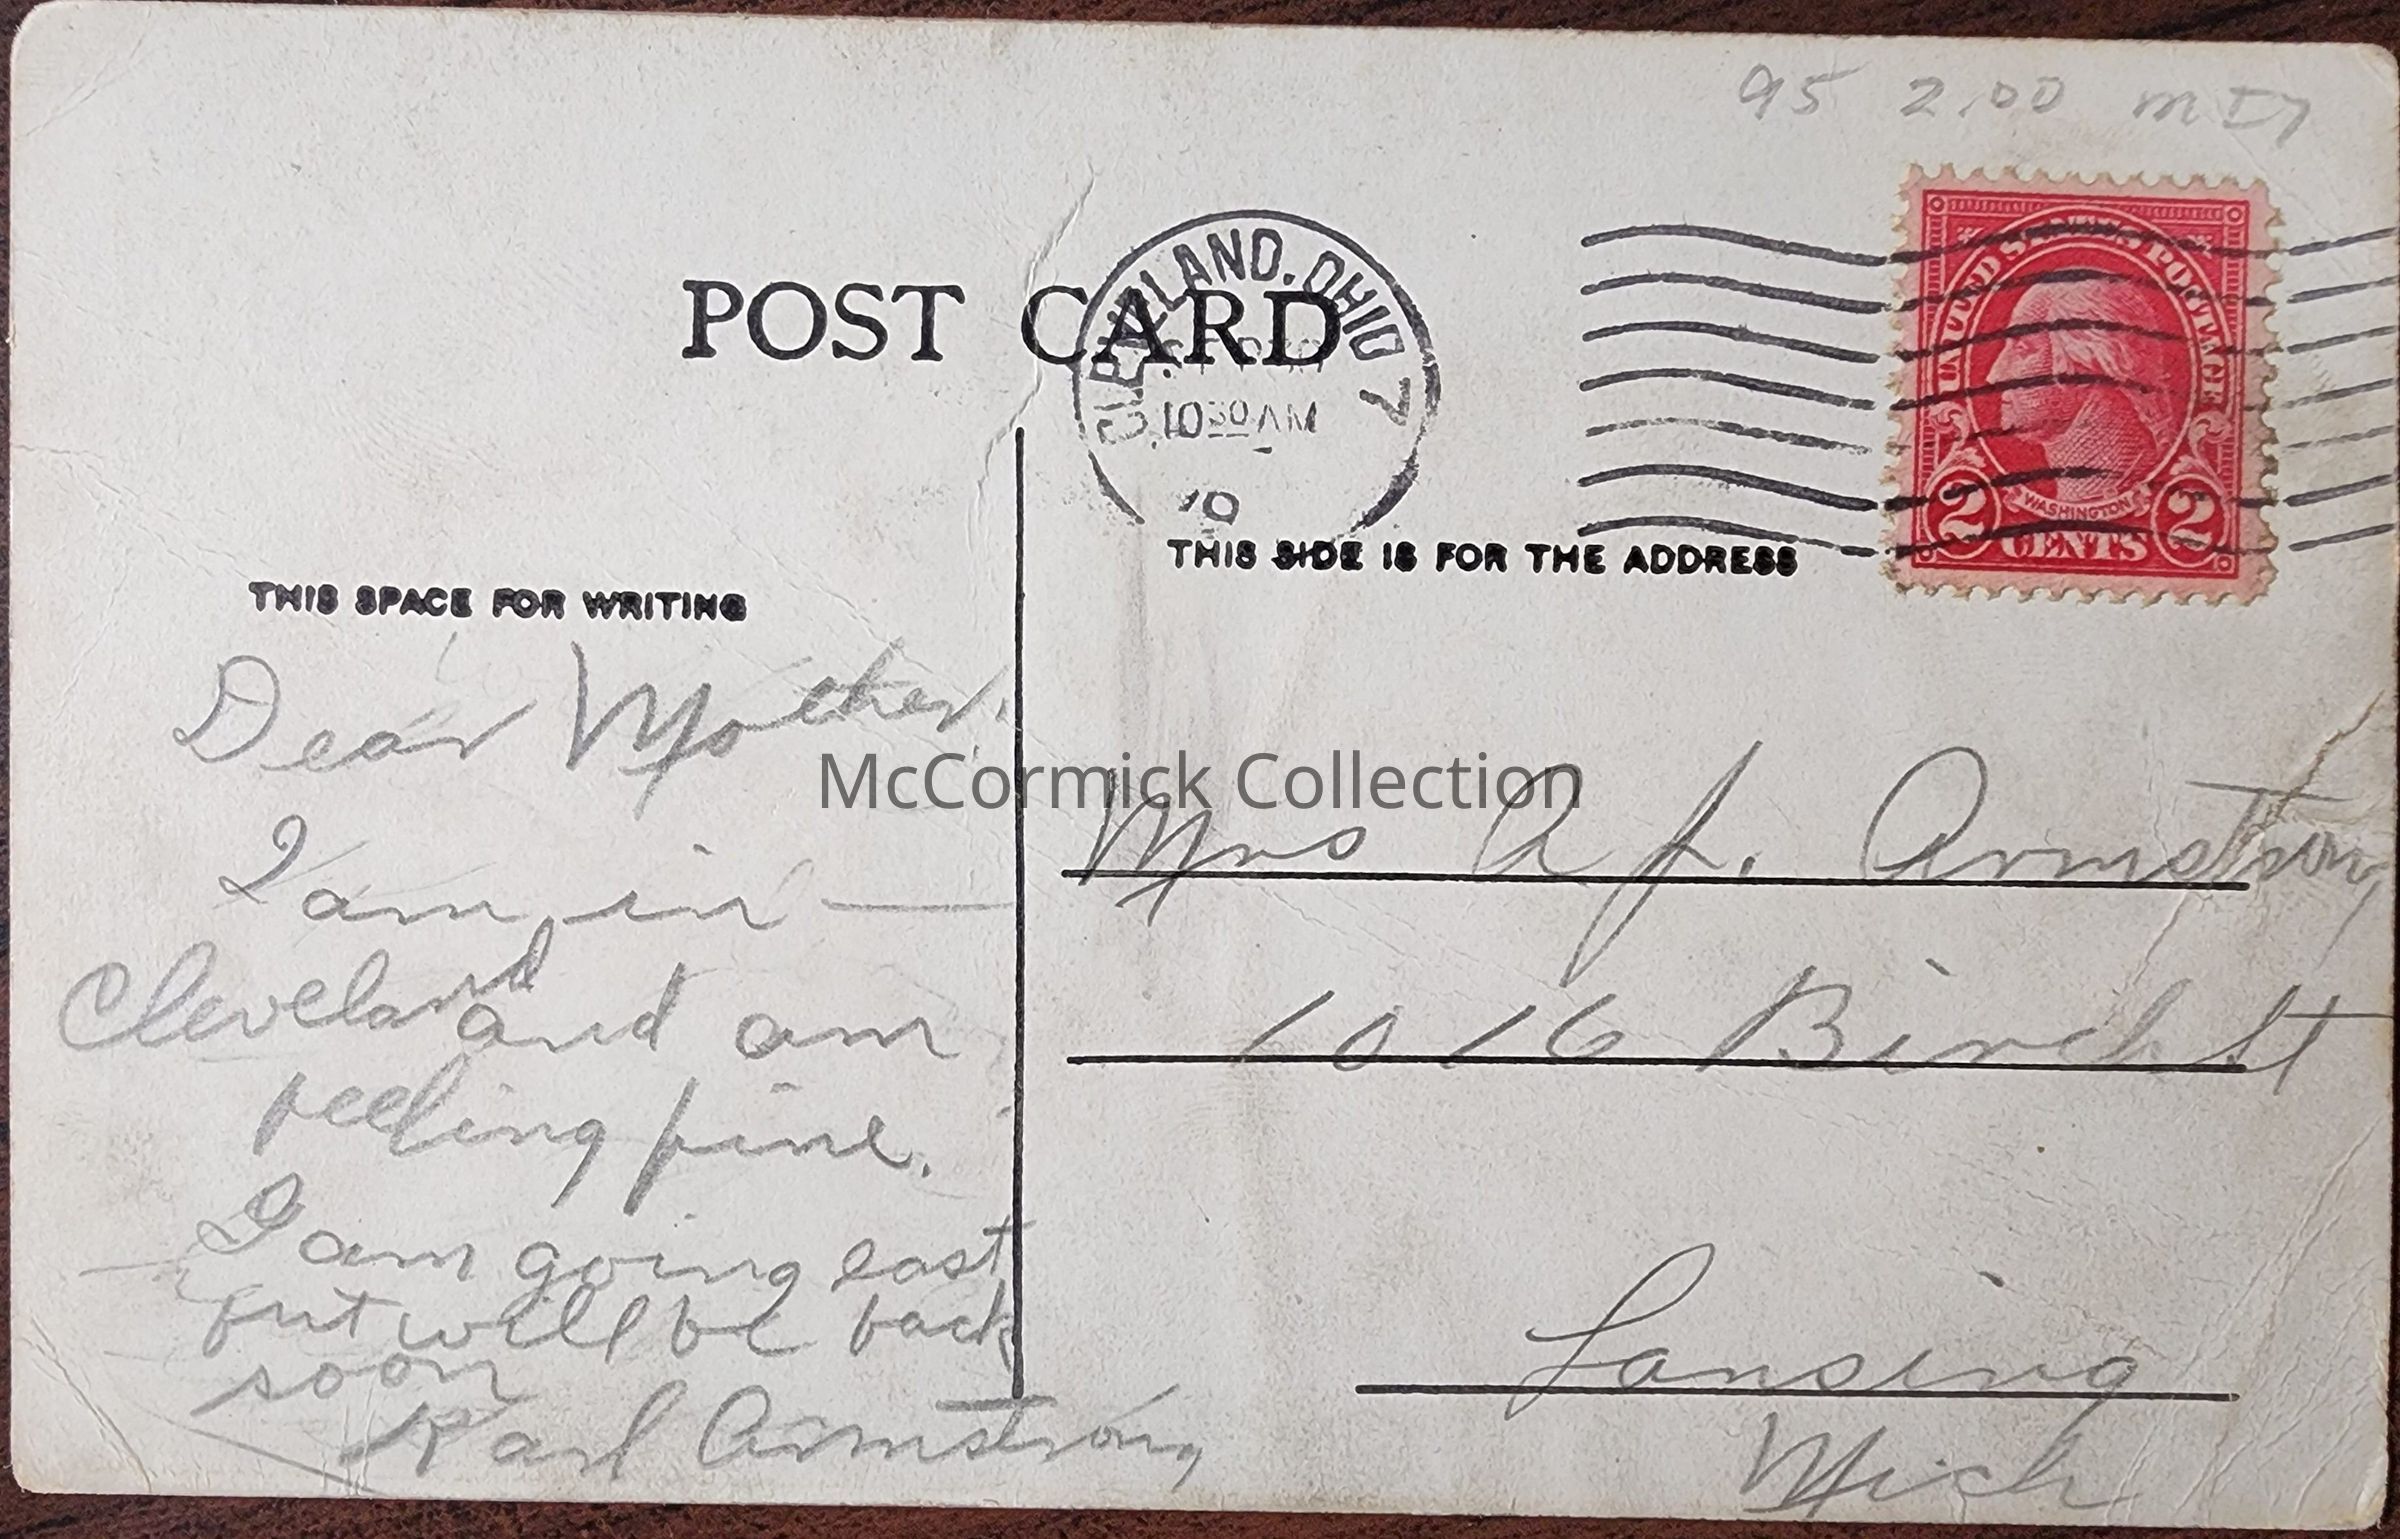 95 2.00
POST CARD
CLEVELAND, OHIO 7
10 30 AM
UNITED STATES POSTAGE
WASHINGTON
2 CENTS 2
THIS SPACE FOR WRITING
THIS SIDE IS FOR THE ADDRESS
Dear Mother.
I am in
Cleveland
and am
feeling fine.
I am going east
but will be back
soon
Karl Armstrong
McCormick Collection
Mrs A J. Armstrong
1016 Birch St
Lansing
Mich